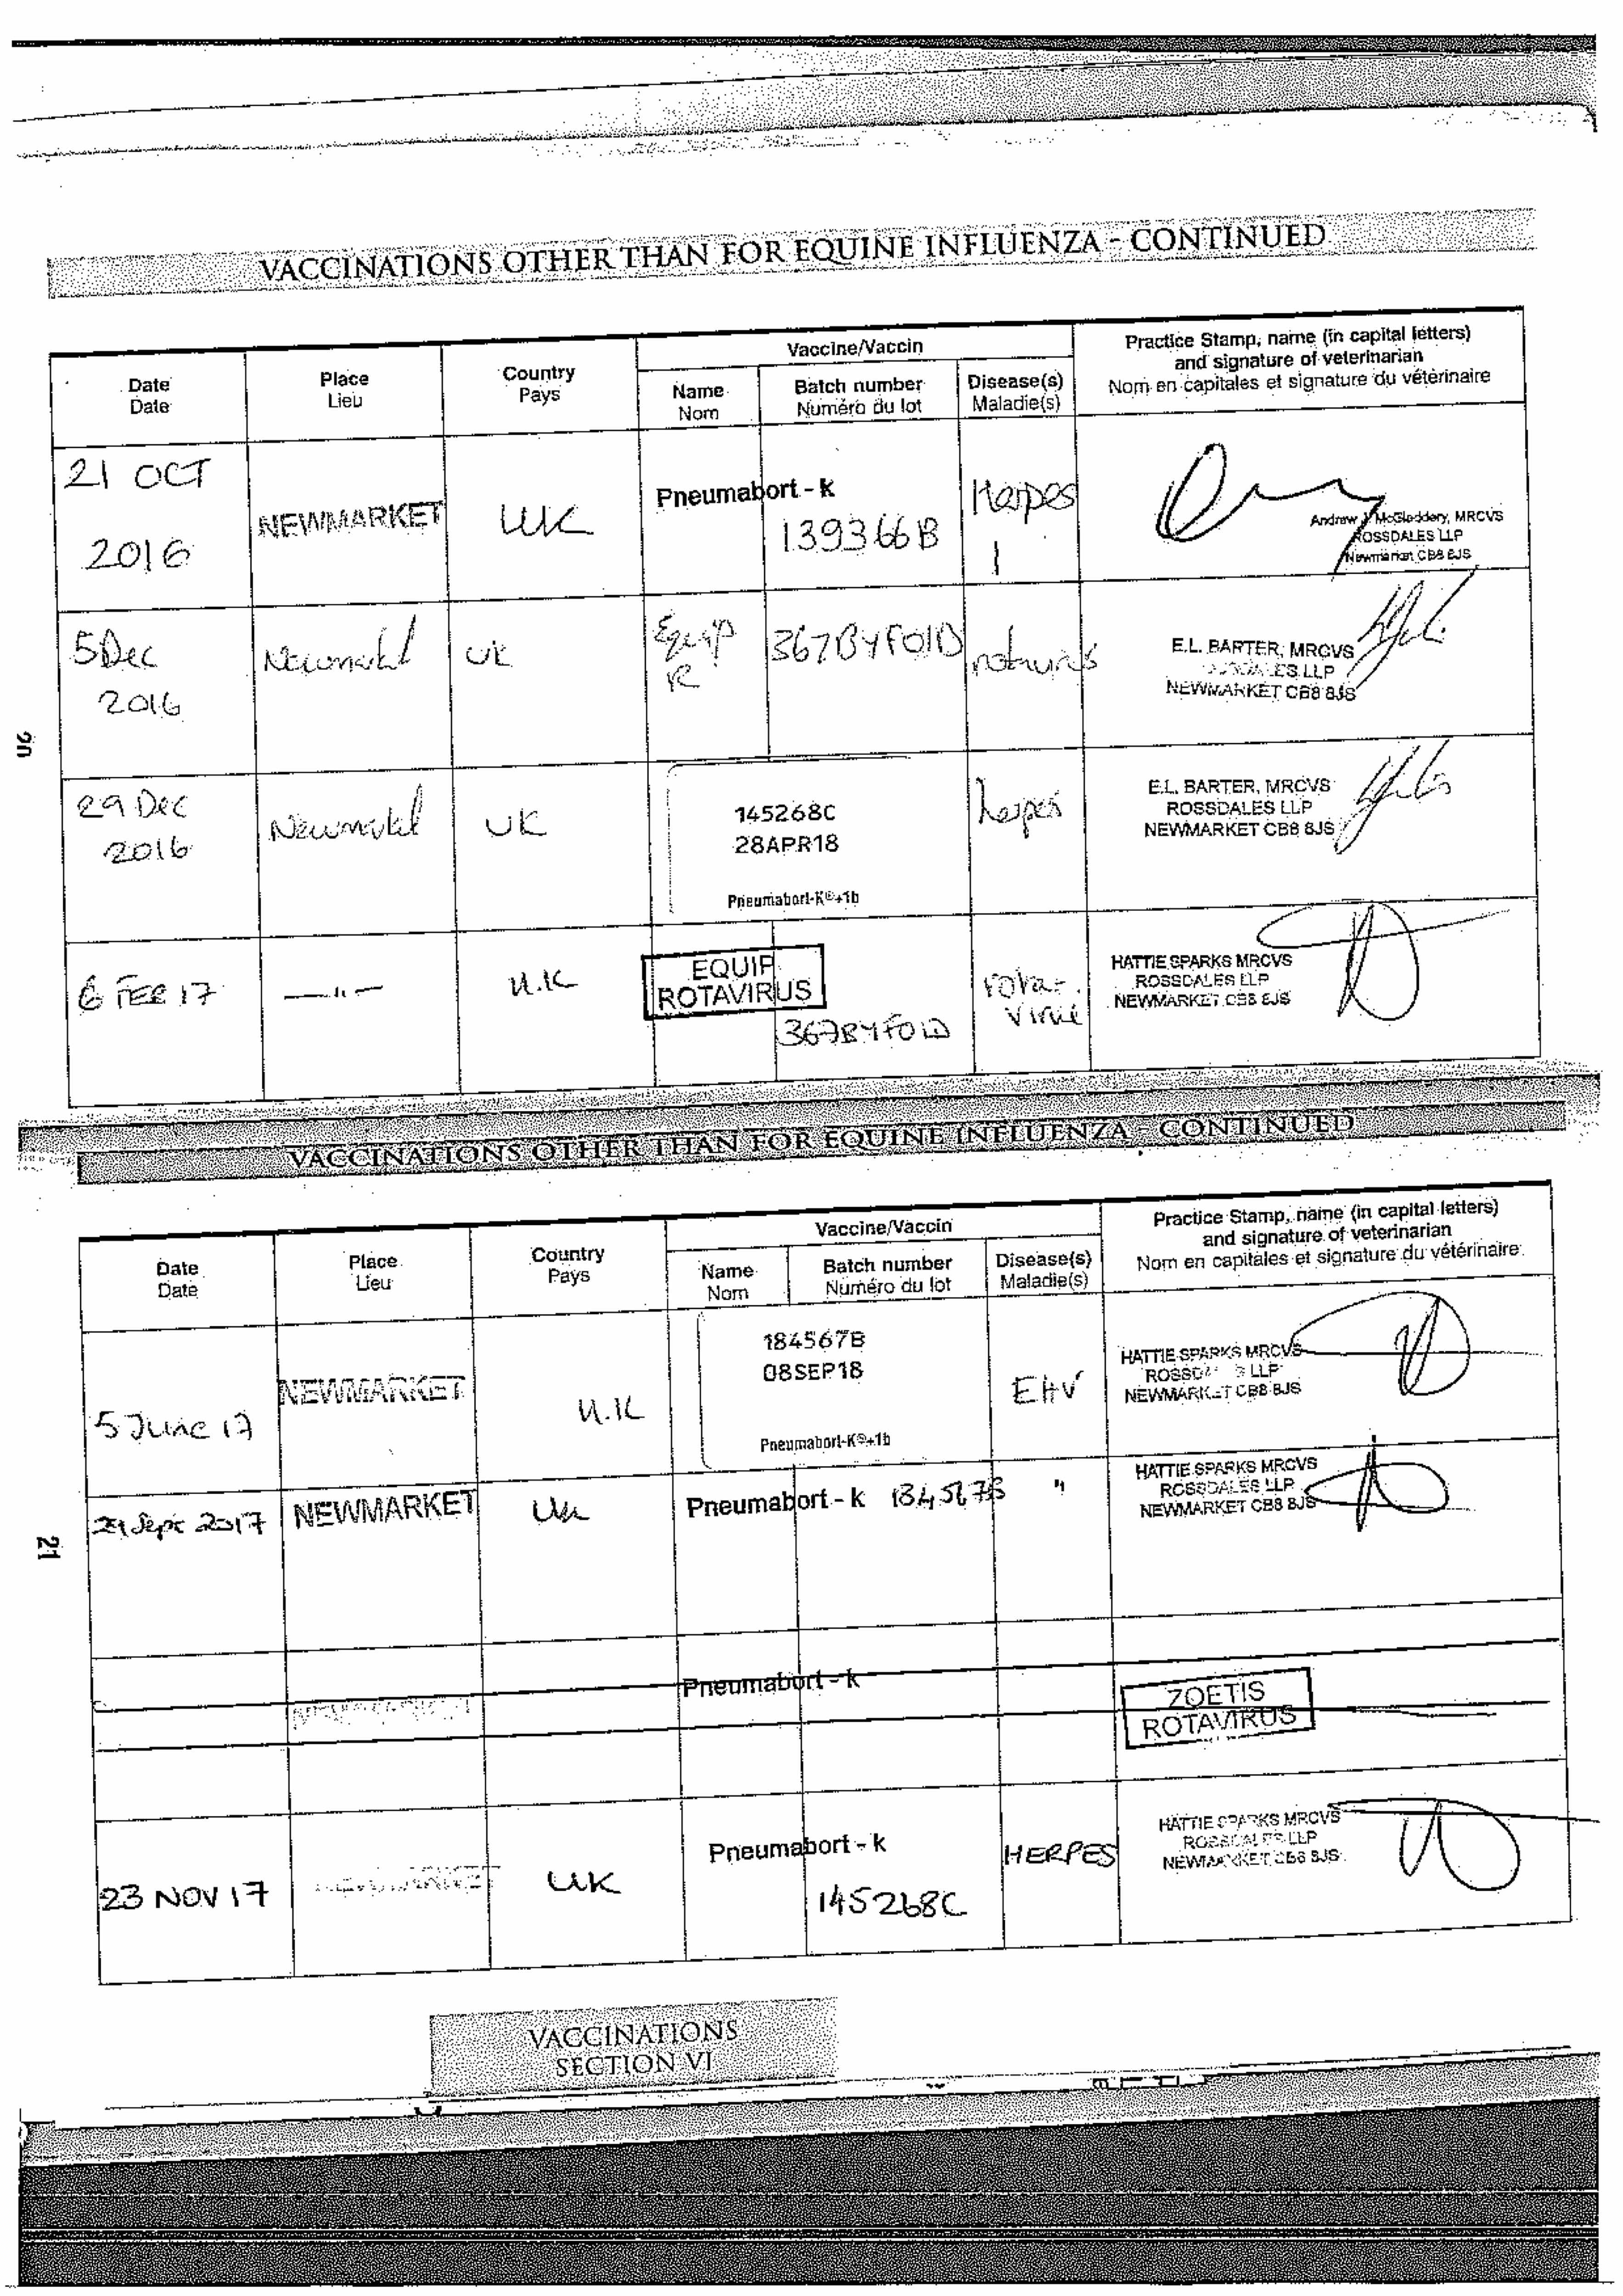 VACCINATIONS OTHER THAN FOR EQUINE INFLUENZA - CONTINUED
Date
Date
Place
Lieu
Country
Pays
Vaccine/Vaccin
Name
Nom
Batch number
Numéro du lot
Disease(s)
Maladie(s)
Practice Stamp, name (in capital letters)
and signature of veterinarian
Nom en capitales et signature du vétérinaire
21 OCT
2016
NEWMARKET
UK
Pneumabort - k
139366B
Herpes
1
Andrew J. McGladdery, MRCVS
ROSSDALES LLP
Newmarket CB8 8JS
5 Dec
2016
Newmarket
UK
Equip
R
367BYF01D
rotavirus
E.L. BARTER, MRCVS
LLP
NEWMARKET CB8 8JS
20
29 Dec
2016
Newmarket
UK
145268C
28APR18
Pneumabort-K®+1b
herpes
E.L. BARTER, MRCVS
ROSSDALES LLP
NEWMARKET CB8 8JS
6 FEB 17
— " —
U.K
EQUIP
ROTAVIRUS
367BYF01D
rota-
virus
HATTIE SPARKS MRCVS
ROSSDALES LLP
NEWMARKET CB8 8JS
VACCINATIONS OTHER THAN FOR EQUINE INFLUENZA - CONTINUED
Date
Date
Place
Lieu
Country
Pays
Vaccine/Vaccin
Name
Nom
Batch number
Numéro du lot
Disease(s)
Maladie(s)
Practice Stamp, name (in capital letters)
and signature of veterinarian
Nom en capitales et signature du vétérinaire
5 June 17
NEWMARKET
U.K
184567B
08SEP18
Pneumabort-K®+1b
EHV
HATTIE SPARKS MRCVS
LLP
NEWMARKET CB8 8JS
21
29 Sept 2017
NEWMARKET
UK
Pneumabort - k
184567B
"
HATTIE SPARKS MRCVS
ROSSDALES LLP
NEWMARKET CB8 8JS
NEWMARKET
Pneumabort - k
ZOETIS
ROTAVIRUS
23 NOV 17
NEWMARKET
UK
Pneumabort - k
145268C
HERPES
HATTIE SPARKS MRCVS
ROSSDALES LLP
NEWMARKET CB8 8JS
VACCINATIONS
SECTION VI